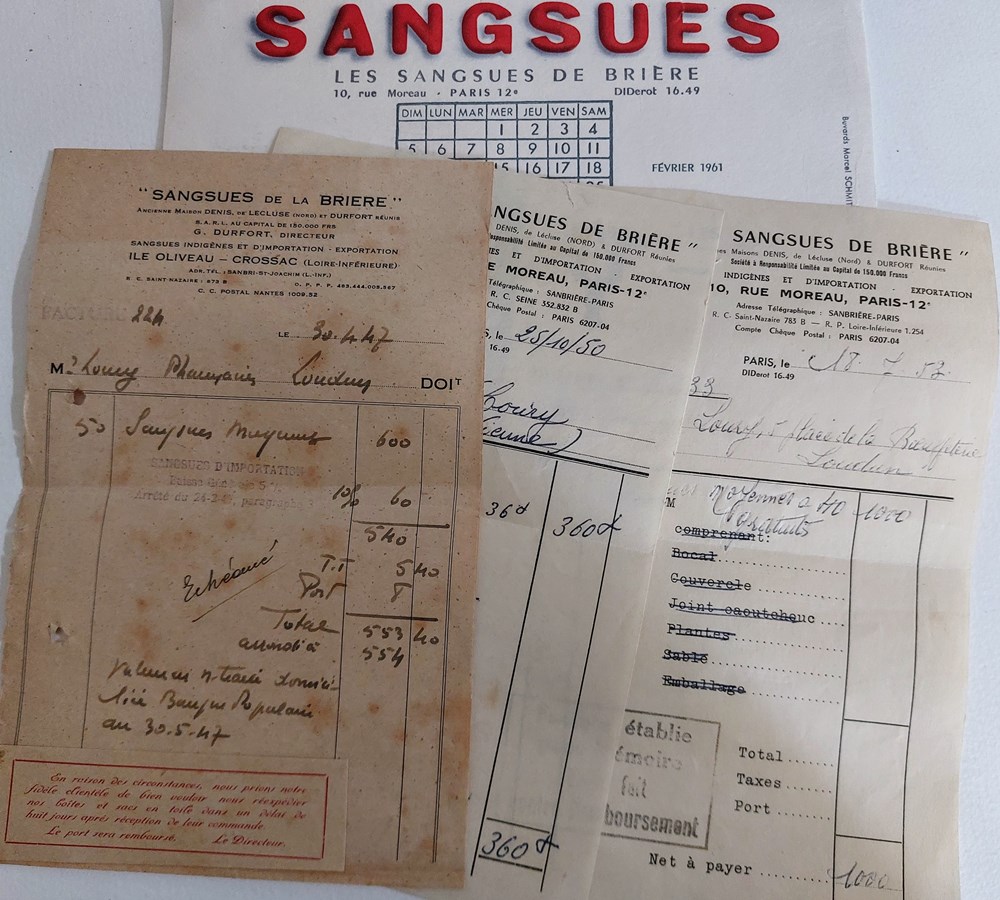 SANGSUES
LES SANGSUES DE BRIÈRE
10, rue Moreau - PARIS 12e
DIDerot 16.49
DIM LUN MAR MER JEU VEN SAM
1 2 3 4
5 6 7 8 9 10 11
15 16 17 18
FÉVRIER 1961
Buvards Marcel SCHMIT
" SANGSUES DE LA BRIERE "
ANCIENNE MAISON DENIS, DE LECLUSE (NORD) ET DURFORT RÉUNIS
S.A.R.L. AU CAPITAL DE 150.000 FRS
G. DURFORT, DIRECTEUR
SANGSUES INDIGÈNES ET D'IMPORTATION - EXPORTATION
ILE OLIVEAU – CROSSAC (LOIRE-INFÉRIEURE)
ADR. TÉL. : SANBRI-ST-JOACHIM (L.-INF.)
R. C. SAINT-NAZAIRE : 873 B
C. C. POSTAL NANTES 1009.52
FACTURE 224
LE 30.4.47
Mr Loury Pharmacien Loudun DOIT
50 Sangsues moyennes 600
SANGSUES D'IMPORTATION
Arrêté du 24-2-4 , paragraphe
10% 60
540
Echéance
T.T 5 40
Port 8
Total 553 40
arrondi à 554
Valeur en n. traite domici-
liée Banque Populaire
au 30.5.47
En raison des circonstances, nous prions notre
fidèle clientèle de bien vouloir nous réexpédier
nos boîtes et sacs en toile dans un délai de
huit jours après réception de leur commande
Le port sera remboursé. Le Directeur.
NGSUES DE BRIÈRE "
DENIS, de Lécluse (NORD) & DURFORT Réunies
esponsabilité Limitée au Capital de 150.000 Francs
ES ET D'IMPORTATION - EXPORTATION
E MOREAU, PARIS-12e
Télégraphique : SANBRIÈRE-PARIS
R. C. SEINE 352.832 B
Chèque Postal : PARIS 6207-04
S, le 25/10/50
16-49
Loury
ienne)
36d 360d
360d
SANGSUES DE BRIÈRE "
es Maisons DENIS, de Lécluse (NORD) & DURFORT Réunies
Société à Responsabilité Limitée au Capital de 150.000 Francs
INDIGÈNES ET D'IMPORTATION - EXPORTATION
10, RUE MOREAU, PARIS-12e
Adresse Télégraphique : SANBRIÈRE-PARIS
R. C- Saint-Nazaire 783 B — R. P. Loire-Inférieure 1.254
Compte Chèque Postal : PARIS 6207-04
PARIS, le 18. 7. 53.
DIDerot 16-49
33
Loury, 5 place de la
Loudun
moyennes à 40 1000
M gratuits
comprenant:
Bocal
Couvercle
Joint caoutchouc
Plantes
Sable
Emballage
établie
émoire
fait
boursement
Total
Taxes
Port
Net à payer 1000